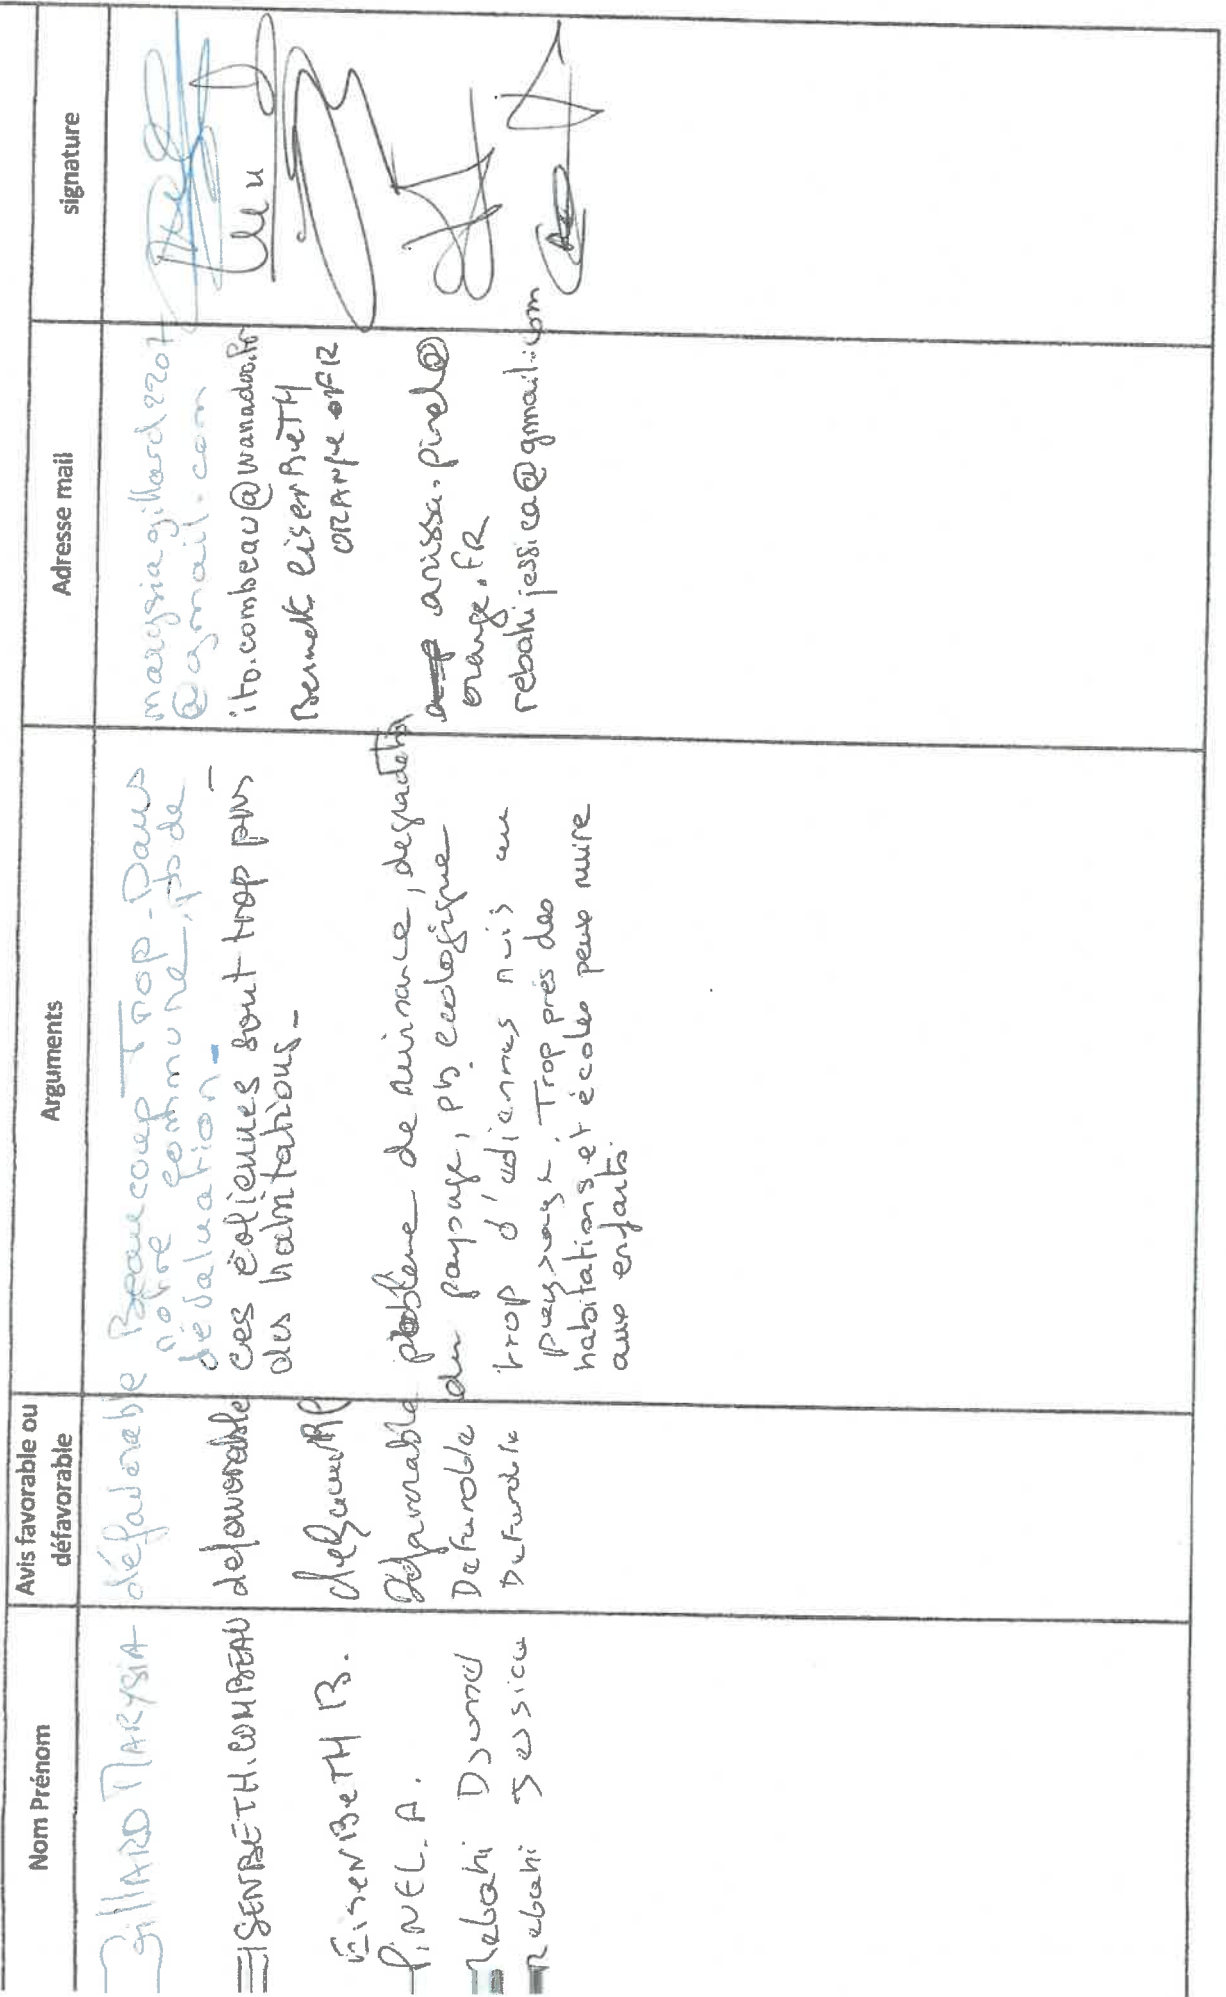 Nom Prénom
Avis favorable ou défavorable
Arguments
Adresse mail
signature
GillARD MARYSIA
défavorable
Beaucoup Trop - Dans
notre commune, pb de
dévaluation -
marysiagillard2207
@gmail.com
EISENBETH.COMBEAU
defavorable
ces éoliennes sont trop près
des habitations -
ito.combeau@wanadoo.fr
EisenBeTH B.
EisenBeTH
ORANge
PiNEL. A.
Défavorable
problème de nuisance, degradation
du paysage, pb. ecologique
anissa.pinel@
orange.FR
Rebahi
trop d'
Rebahi Jessica
Trop près des
habitations et écoles peux nuire
aux enfants.
rebahijessica@gmail.com